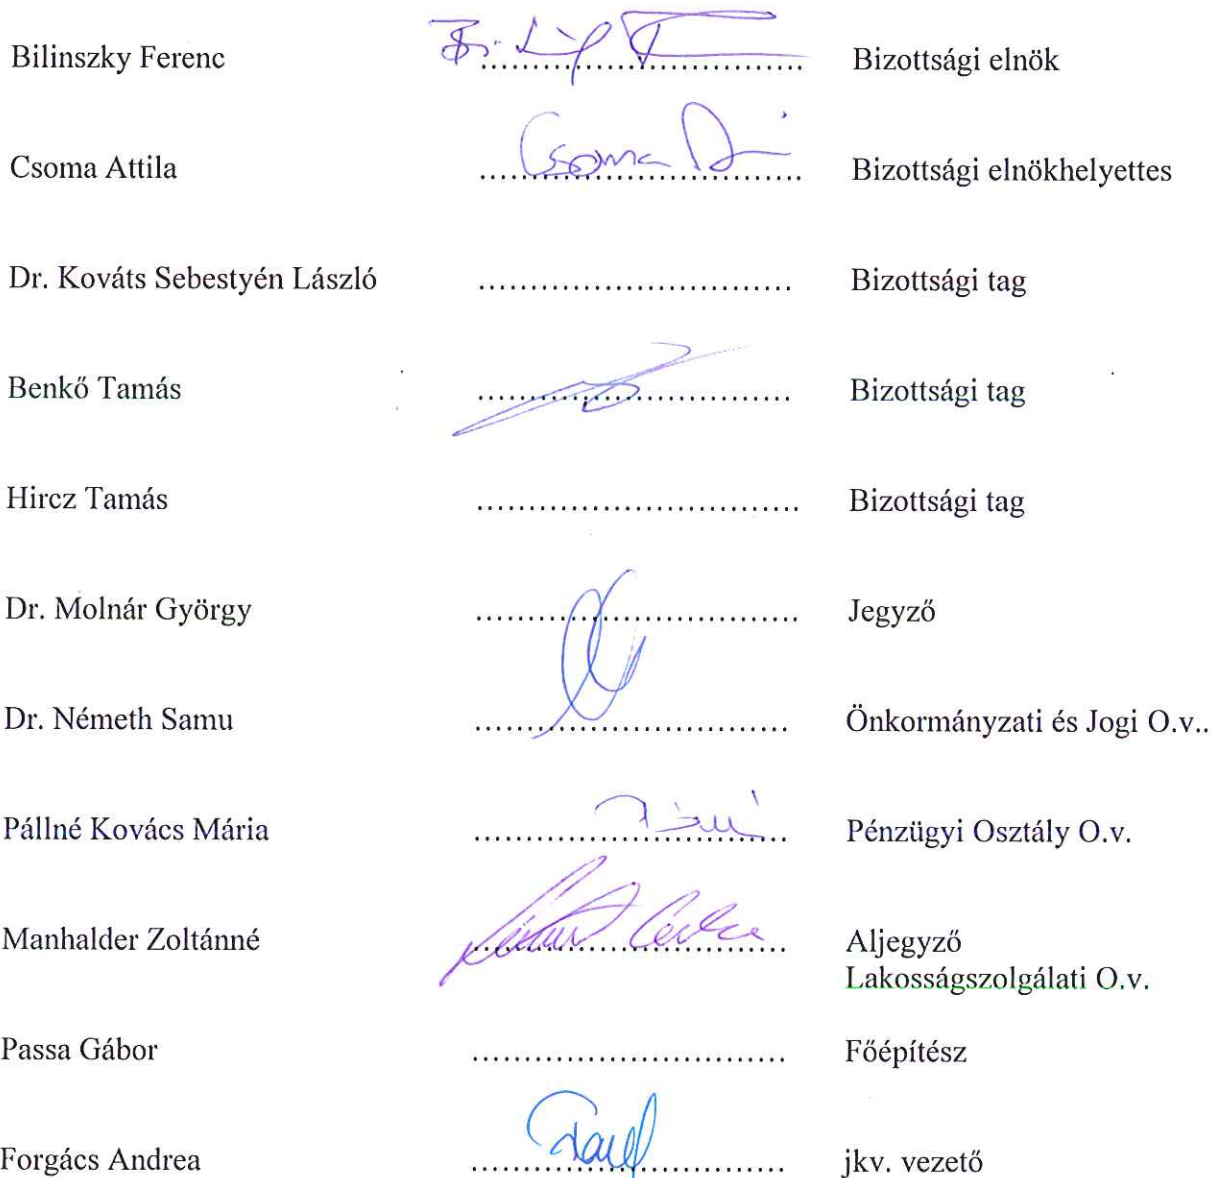 Bilinszky Ferenc .............................. Bizottsági elnök
Csoma Attila Csoma .............................. Bizottsági elnökhelyettes
Dr. Kováts Sebestyén László .............................. Bizottsági tag
Benkő Tamás .............................. Bizottsági tag
Hircz Tamás .............................. Bizottsági tag
Dr. Molnár György .............................. Jegyző
Dr. Németh Samu .............................. Önkormányzati és Jogi O.v..
Pállné Kovács Mária .............................. Pénzügyi Osztály O.v.
Manhalder Zoltánné .............................. Aljegyző
Lakosságszolgálati O.v.
Passa Gábor .............................. Főépítész
Forgács Andrea .............................. jkv. vezető